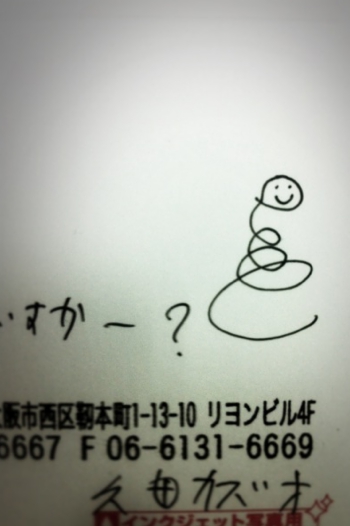 いすかー?
阪市西区靭本町1-13-10 リヨンビル4F
6667 F 06-6131-6669
久田カズオ
インクジェット写真用